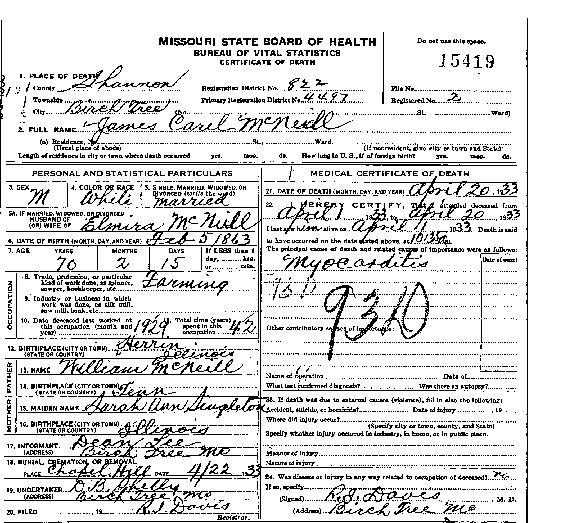 MISSOURI STATE BOARD OF HEALTH
BUREAU OF VITAL STATISTICS
CERTIFICATE OF DEATH
Do not use this space.
15419
1. PLACE OF DEATH
County Shannon
Registration District No. 822
File No.
Township
Primary Registration District No. 4497
Registered No. 2
City Birch Tree
St. Ward)
2. FULL NAME James Carel McNeill
(a) Residence, No. St. Ward.
(Usual place of abode) (If nonresident, give city or town and State)
Length of residence in city or town where death occurred yrs. mos. ds. How long in U.S., if of foreign birth? yrs. mos. ds.
PERSONAL AND STATISTICAL PARTICULARS
3. SEX M
4. COLOR OR RACE White
5. SINGLE, MARRIED, WIDOWED, OR DIVORCED married
5A. IF MARRIED, WIDOWED, OR DIVORCED
HUSBAND OF
(OR) WIFE OF Elmira McNeill
6. DATE OF BIRTH (MONTH, DAY, AND YEAR) Feb 5 1863
7. AGE YEARS 70 MONTHS 2 DAYS 15
8. Trade, profession, or particular kind of work done, as spinner, sawyer, bookkeeper, etc. Farming
9. Industry or business in which work was done, as silk mill, saw mill, bank, etc.
10. Date deceased last worked at this occupation (month and year) 1929
11. Total time (years) spent in this occupation 42
12. BIRTHPLACE (CITY OR TOWN) Herrin
(STATE OR COUNTRY) Illinois
13. NAME William McNeill
14. BIRTHPLACE (CITY OR TOWN) Tenn
(STATE OR COUNTRY)
15. MAIDEN NAME Sarah Ann Singleton
16. BIRTHPLACE (CITY OR TOWN) Illinois
(STATE OR COUNTRY)
17. INFORMANT Dean Lee
(ADDRESS) Birch Tree Mo
18. BURIAL, CREMATION, OR REMOVAL
PLACE Chapel Hill DATE 4/22 33
19. UNDERTAKER
(ADDRESS) Birch Tree Mo
20. FILED 19 R.S. Davis
Registrar.
MEDICAL CERTIFICATE OF DEATH
21. DATE OF DEATH (MONTH, DAY, AND YEAR) April 20 33
22. I HEREBY CERTIFY, That I attended deceased from
April 1 33 to April 20 33
I last saw alive on April 33 Death is said
to have occurred on the date stated above, at
The principal causes of death and related causes of importance were as follows:
Date of onset
Myocarditis
930
Other contributory causes of importance:
Name of operation Date of
What test confirmed diagnosis? Was there an autopsy?
23. If death was due to external causes (violence), fill in also the following:
Accident, suicide, or homicide? Date of injury 19
Where did injury occur?
(Specify city or town, county, and State)
Specify whether injury occurred in industry, in home, or in public place.
Manner of injury
Nature of injury
24. Was disease or injury in any way related to occupation of deceased? no
If so, specify
(Signed) R.S. Davis M.D.
(Address) Birch Tree Mo